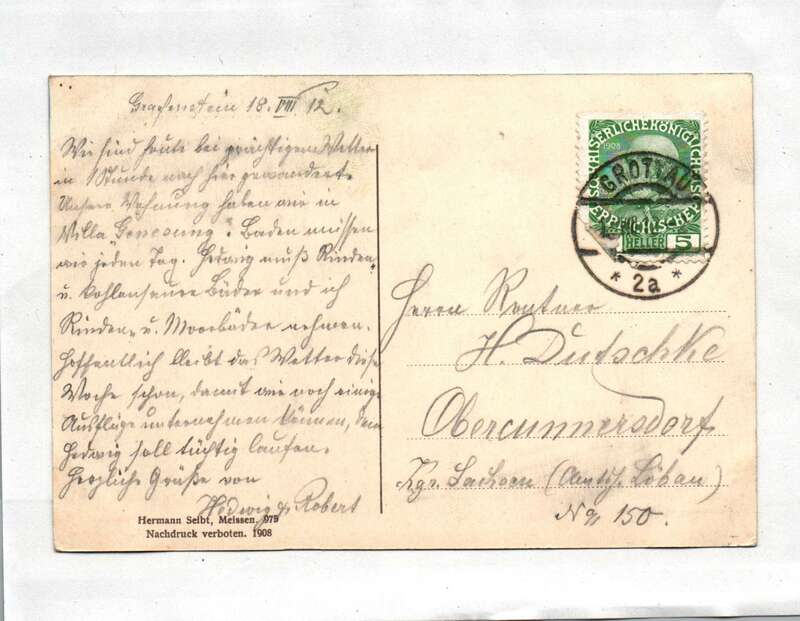 Grafenstein 18. VIII 12.
Wir sind heute bei prächtigem Wetter
in 1 Stunde nach hier gewandert.
Unsere Wohnung haben wir in
Villa "Genesung". Baden müssen
wir jeden Tag. Hedwig muß Rinden
u. Kohlensaure Bäder und ich
Rinden- u. Moorbäder nehmen.
Hoffentlich bleibt das Wetter diese
Woche schön, damit wir noch einige
Ausflüge unternehmen können, denn
Hedwig soll tüchtig laufen.
Herzliche Grüße von
Hedwig & Robert
Hermann Seibt, Meissen. 979
Nachdruck verboten. 1908
KAISERLICHEKÖNIGLICHE
1908
ÖSTERREICHISCHE
HELLER 5
GROTTAU
* 2a *
Herrn Rentner
H. Dutschke
Obercunnersdorf
Kgr. Sachsen (Amtsh. Löbau)
No 150.